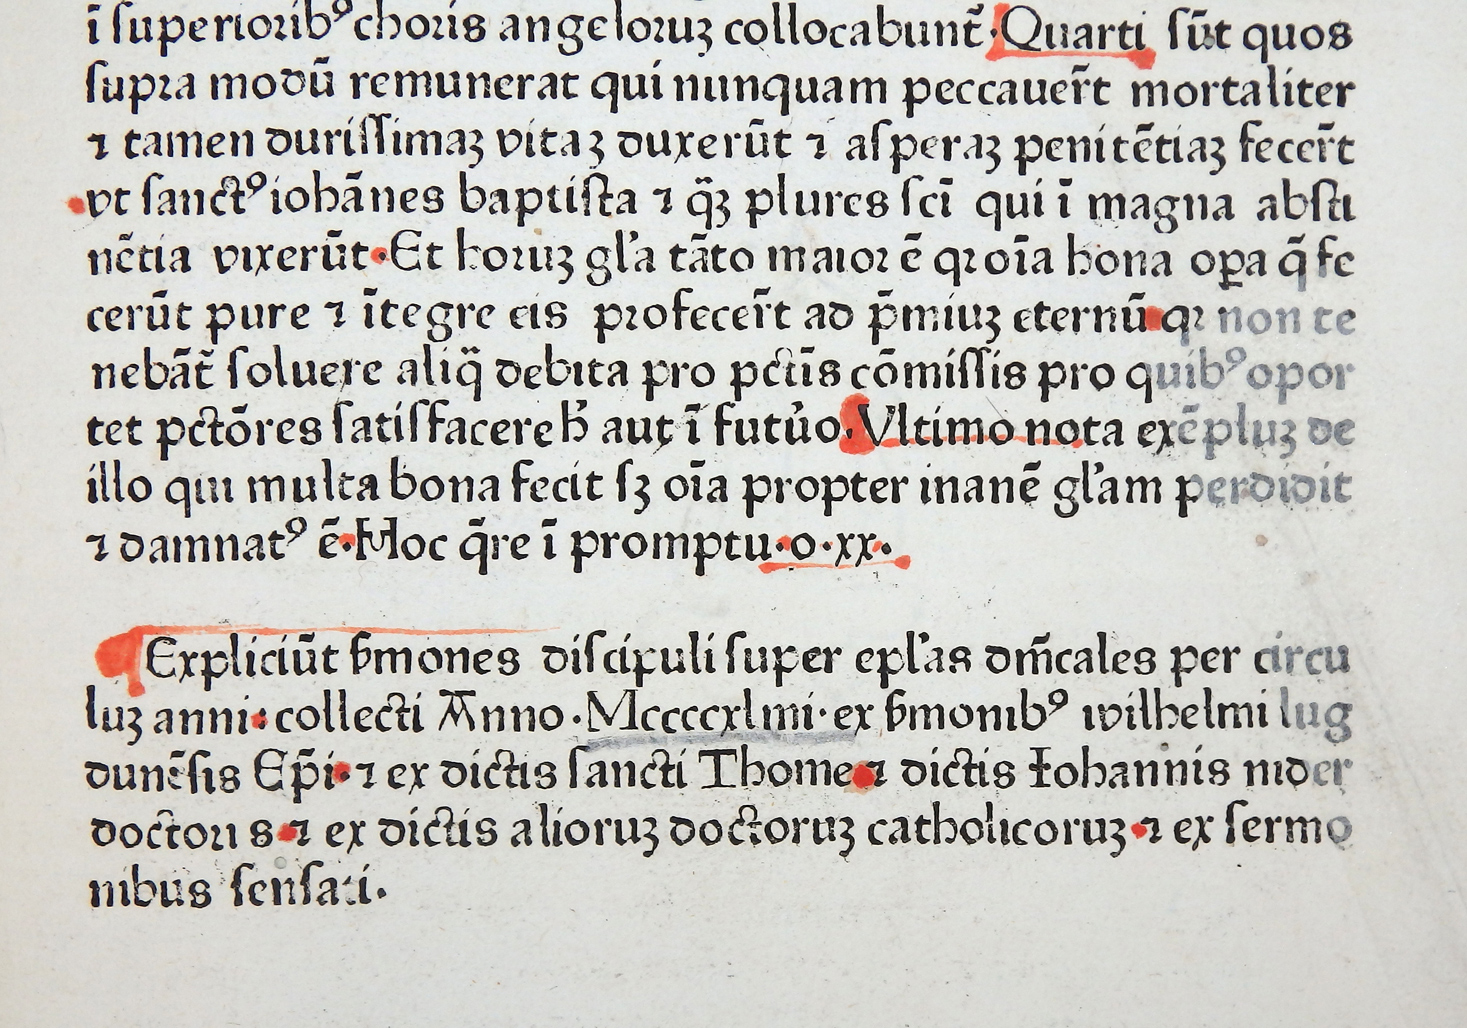 ī ſuperiorib⁹ choris angeloꝛuꝫ collocabunt̄·Quarti ſūt quos
ſupꝛa modū remunerat qui nunquam peccauer̄t mortaliter
⁊ tamen duriſſimaꝫ vitaꝫ duxerūt ⁊ aſperaꝫ penitētiaꝫ fecer̄t
vt ſanct⁹ iohānes baptiſta ⁊ qᷓꝫ plures ſcī qui ī magna abſti
nētia vixerūt·Et hoꝛuꝫ gl'a tāto maioꝛ ē qꝛ oīa bona oꝑa q̄ fe
cerūt pure ⁊ ītegre eis pꝛofecer̄t ad p̄miuꝫ eternū qꝛ non te
nebāt̄ ſoluere aliqᷓ debita pro pctīs cōmiſſis pro quib⁹ opor
tet pctōres ſatiſfacere h̓ aut ī futu᷑o·Vltimo nota exēpluꝫ de
illo qui multa bona fecit ſꝫ oīa propter inanē gl'am perdidit
⁊ damnat⁹ ē·Hoc q̄re ī promptu·o·xx·
Expliciūt ẜmones diſcipuli ſuper epl'as dm̄cales per circu
luꝫ anni: collecti Anno·Mccccxliiii·ex ẜmonib⁹ wilhelmi lug
dunēſis Ep̄i·⁊ ex dictis ſancti Thome ⁊ dictis Iohannis nider
doctoꝛis ⁊ ex dictis alioruꝫ doctoruꝫ catholicoruꝫ·⁊ ex ſermo
nibus ſenſati·